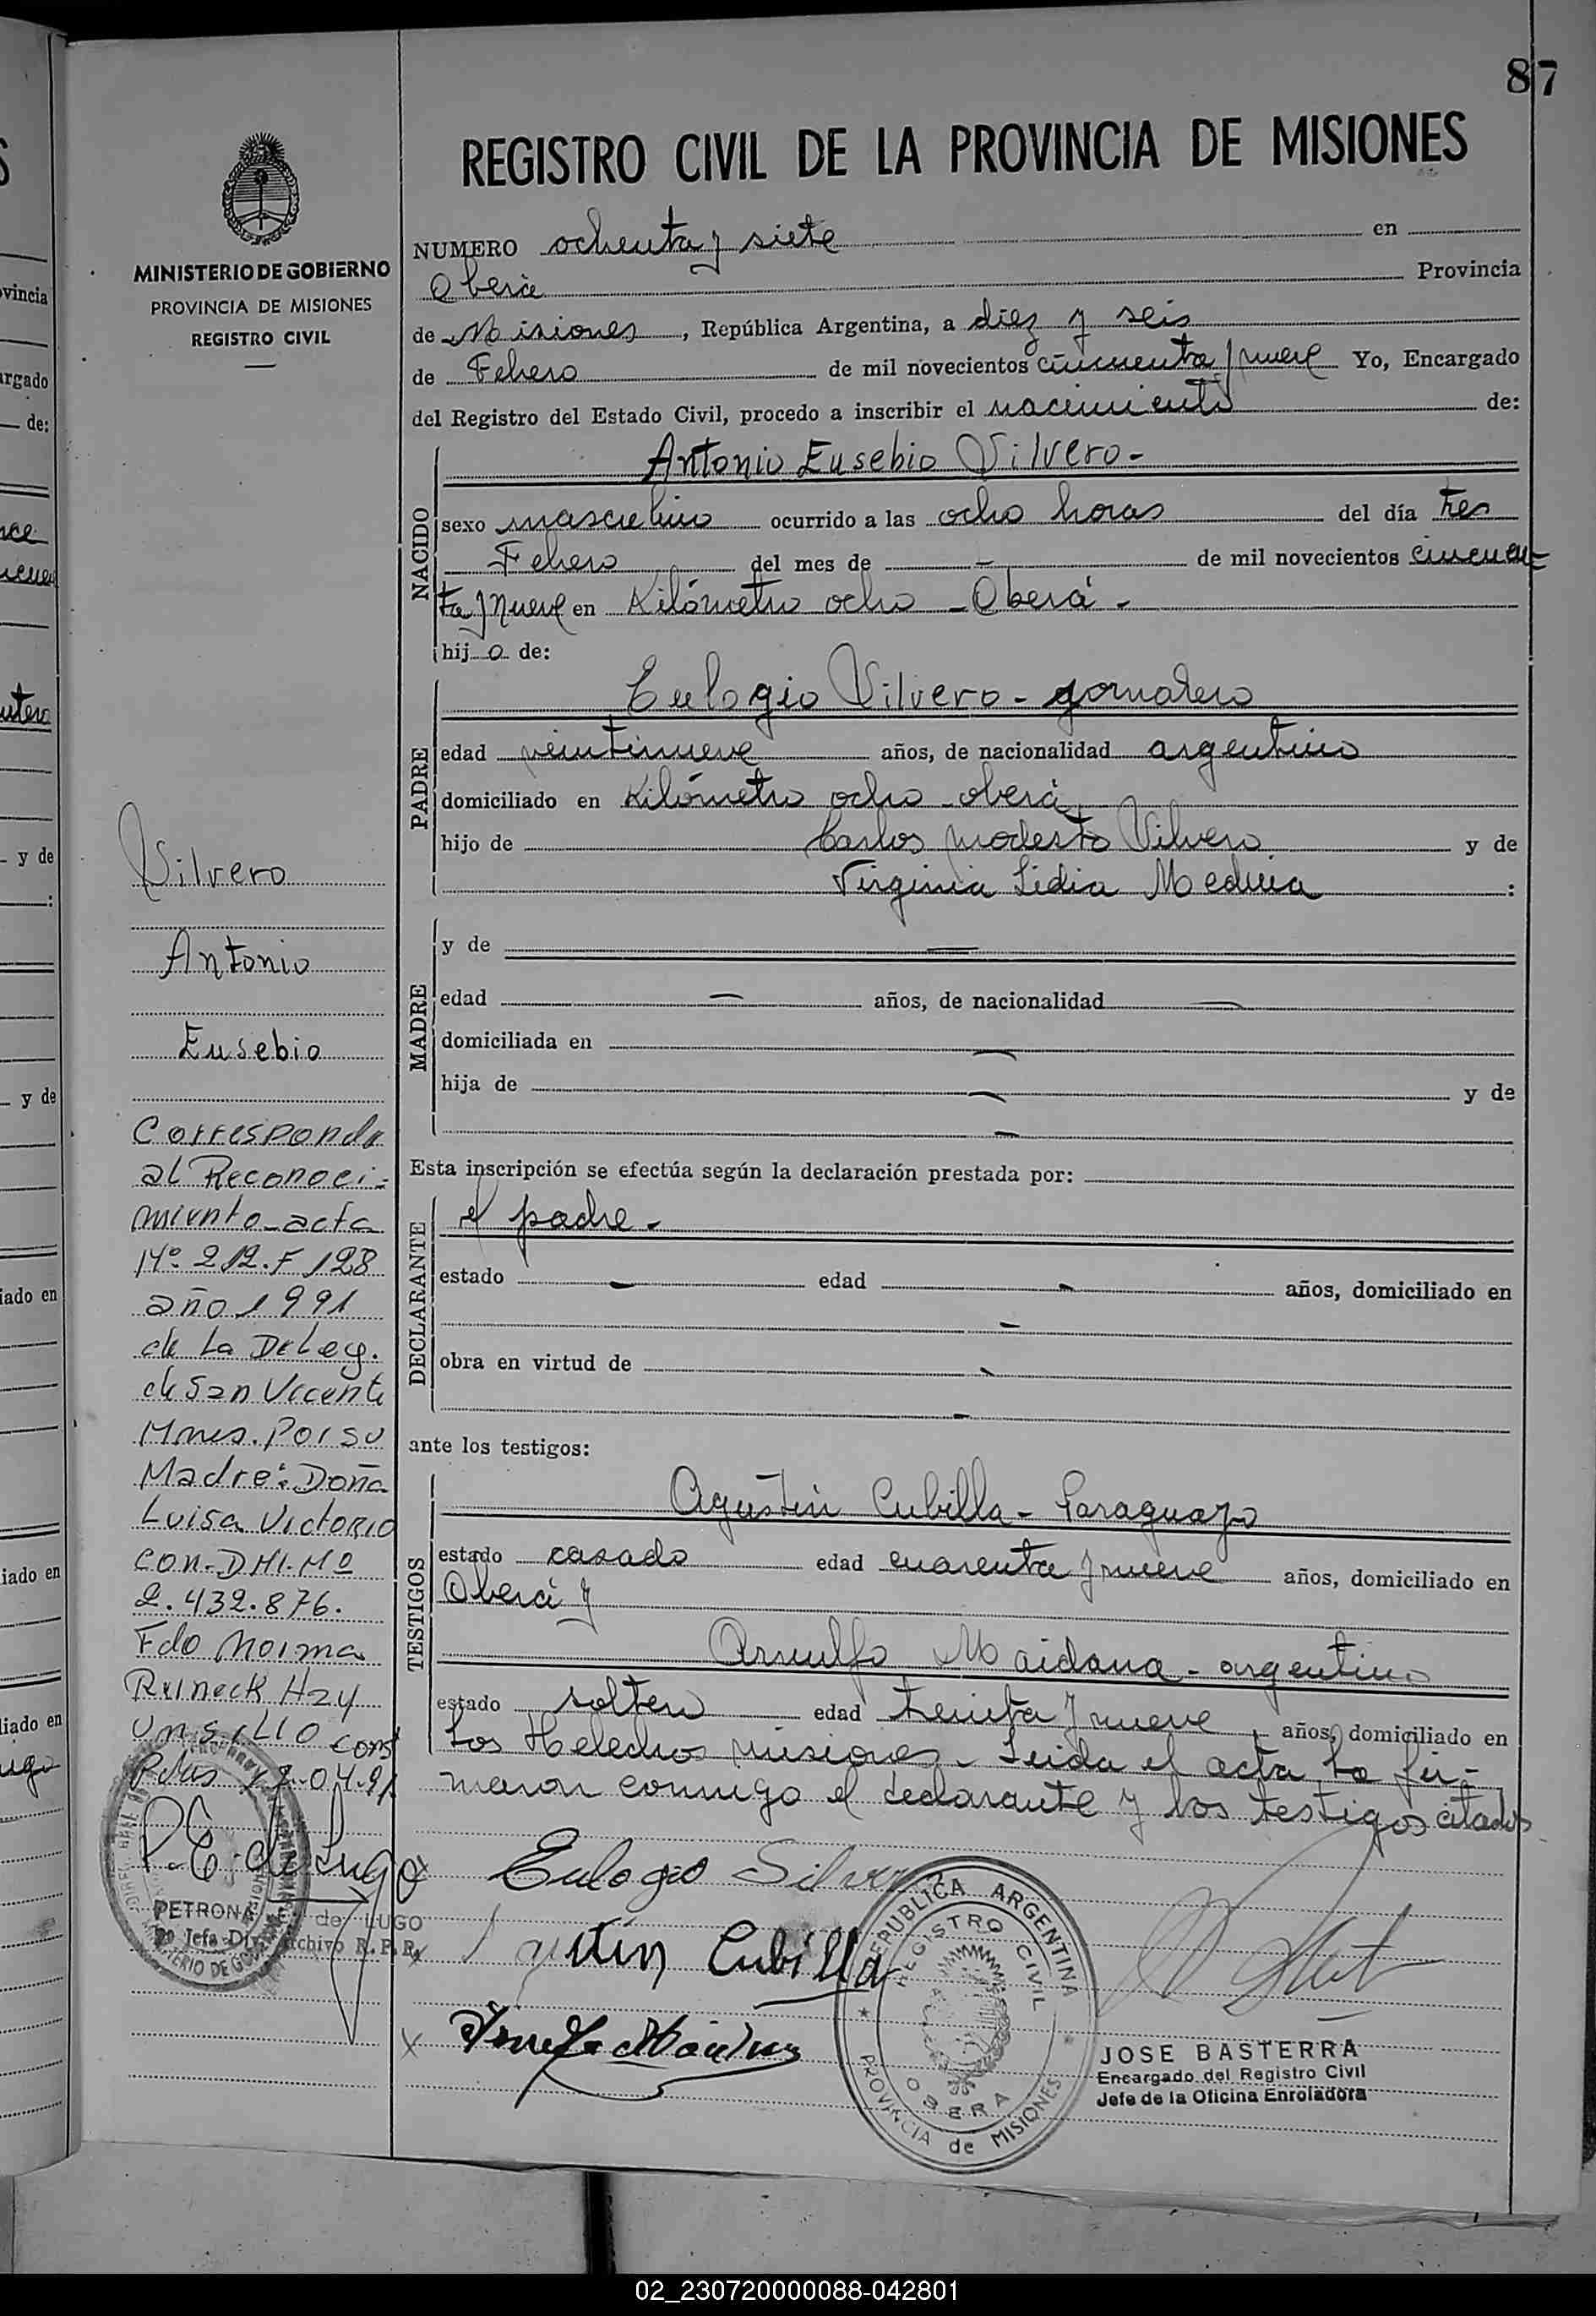 87
REGISTRO CIVIL DE LA PROVINCIA DE MISIONES
MINISTERIO DE GOBIERNO
PROVINCIA DE MISIONES
REGISTRO CIVIL
NUMERO ochenta y siete en
Oberá Provincia
de Misiones, República Argentina, a diez y seis
de Febrero de mil novecientos cincuenta y nueve Yo, Encargado
del Registro del Estado Civil, procedo a inscribir el nacimiento de:
NACIDO
Antonio Eusebio Vilvero-
sexo masculino ocurrido a las ocho horas del día tres
Febrero del mes de — de mil novecientos cincuen-
ta y nueve en Kilómetro ocho - Oberá -
hijo de:
PADRE
Eulogio Vilvero - jornalero
edad veintinueve años, de nacionalidad argentino
domiciliado en Kilómetro ocho - oberá
hijo de Carlos Modesto Vilvero y de
Virginia Lidia Medina :
MADRE
y de —
edad — años, de nacionalidad —
domiciliada en —
hija de — y de
—
Esta inscripción se efectúa según la declaración prestada por:
DECLARANTE
el padre -
estado — edad — años, domiciliado en
—
obra en virtud de —
—
ante los testigos:
TESTIGOS
Agustín Cubilla - Paraguayo
estado casado edad cuarenta y nueve años, domiciliado en
Oberá y
Arnulfo Maidana - argentino
estado soltero edad treinta y nueve, años, domiciliado en
Los Helechos misiones - Leida el acta la fir-
maron conmigo el declarante y los testigos citados
Vilvero
Antonio
Eusebio
Corresponde
al Reconoci-
miento acta
Nº 212. F 128
año 1991
de La Deleg.
de San Vicente
Mnes. Por su
Madre: Doña
Luisa Victorio
con. DNI. Nº
2.432.876.
Fdo Norma
Reineck Hay
un sello Const
Pdas 17-04-91
P. E. de Lugo
PETRONA E. de LUGO
Jefa Div. Archivo R. P. R.
Eulogio Silvero
Agustin Cubilla
REPUBLICA ARGENTINA
REGISTRO CIVIL
OBERA
PROVINCIA de MISIONES
JOSE BASTERRA
Encargado del Registro Civil
Jefe de la Oficina Enroladora
02_230720000088-042801
vincia
argado
de:
y de
:
y de
iado en
iado en
liado en